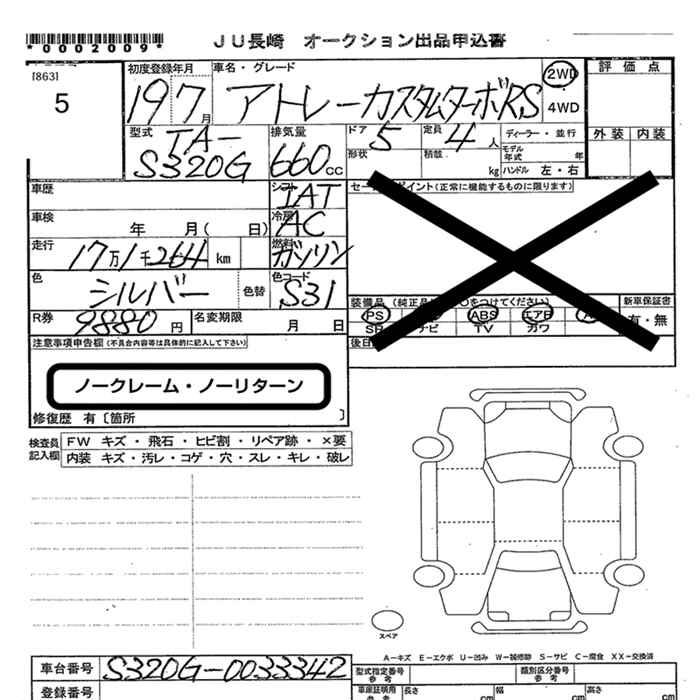 *0002009*
JU長崎 オークション出品申込書
[863]
5
初度登録年月
19年7月
車名・グレード
アトレーカスタムターボRS
2WD
4WD
評価点
外装 内装
型式
TA-
S320G
排気量
660cc
ドア 5
形状
定員 4人
積載 kg
ディーラー・並行
モデル年式 年
ハンドル 左・右
車歴
シフト
IAT
セールスポイント(正常に機能するものに限ります)
車検 年 月( 日)
冷房
AC
走行 17万1千264 km
燃料
ガソリン
色 シルバー 色替
色コード
S31
装備品(純正品 ○をつけてください)
新車保証書
有・無
PS ABS エアB
SR ナビ TV カワ
R券 9880円
名変期限 月 日
後日
注意事項申告欄(不具合内容等は具体的に記入して下さい)
ノークレーム・ノーリターン
修復歴 有〔箇所 〕
検査員記入欄
FW キズ・飛石・ヒビ割・リペア跡・×要
内装 キズ・汚レ・コゲ・穴・スレ・キレ・破レ
スペア
A-キズ E-エクボ U-凹み W-補修跡 S-サビ C-腐食 XX-交換済
車台番号 S320G-0033342
型式指定番号
参考
類別区分番号
参考
登録番号
車庫証明用
参考
長さ cm 幅 cm 高さ cm